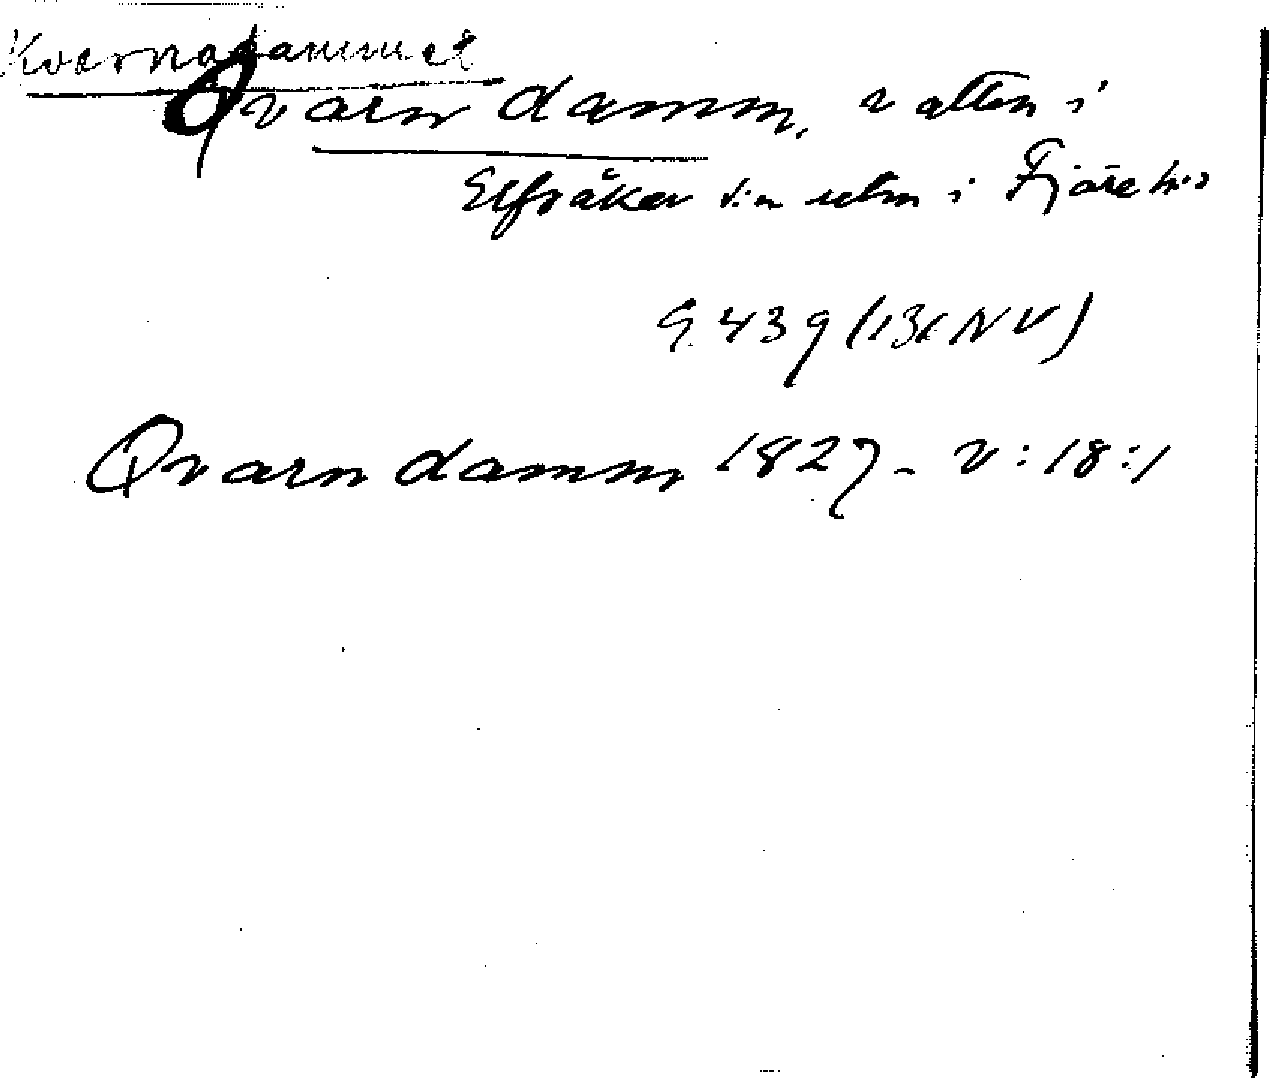 Kvarnadammet
Qvarn damm, vatten i
Elfsåker s:n i Fjäre h:d
G. 439 (136 NV)
Qvarn damm 1827 - V:18:1